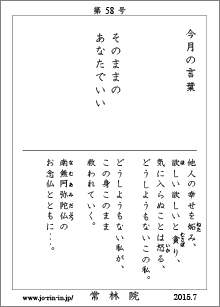 第58号
今月の言葉
そのままの
あなたでいい
他人の幸せを妬み、
欲しい欲しいと貪り、
気に入らぬことは怒る、
どうしようもないこの私。
どうしようもない私が、
この身このまま
救われていく。
南無阿弥陀仏の
お念仏とともに…。
www.jo-rin-in.jp/
常林院
2015.7